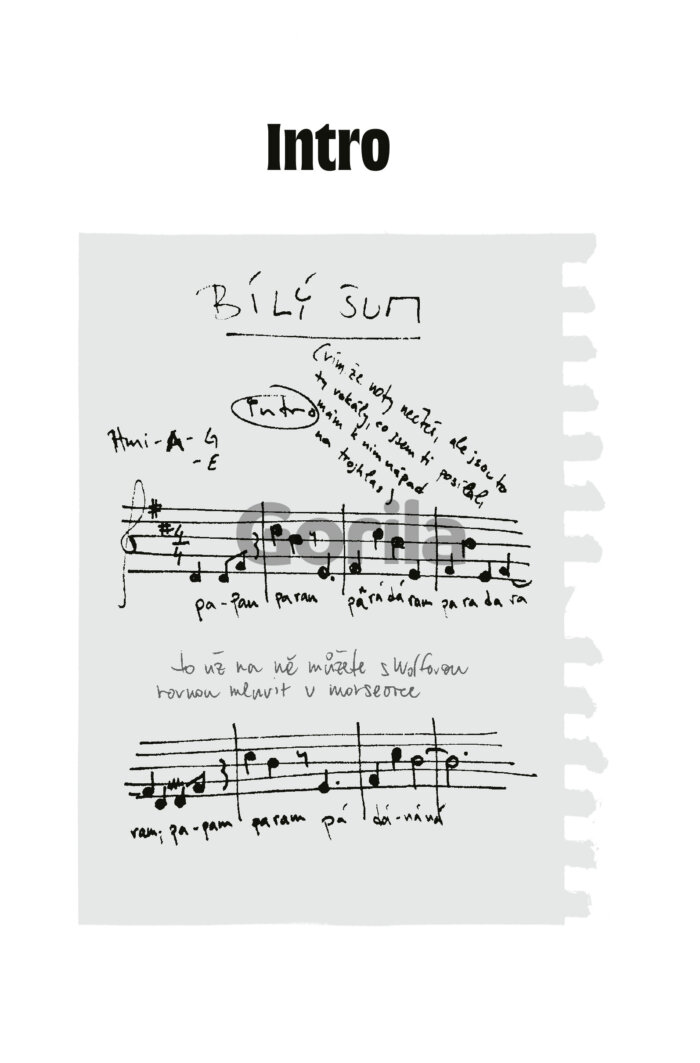 Intro
BÍLÝ ŠUM
(vím že noty nečteš, ale jsou to
ty vokály, co jsem ti posílal,
mám k nim nápad
na trojhlas)
intro
Hmi-A-G
-E
4
4
Gorila
pa-pam param párádáram paradara
to už na ně můžete s Wolfovou
rovnou mluvit v morseovce
ram, pa-pam param pá dá-náná